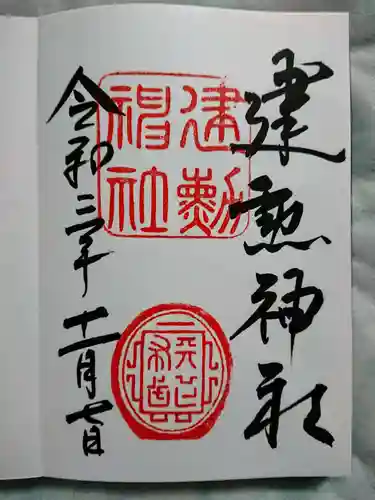 建勲神社
建勲
神社
令和三年
十一月七日